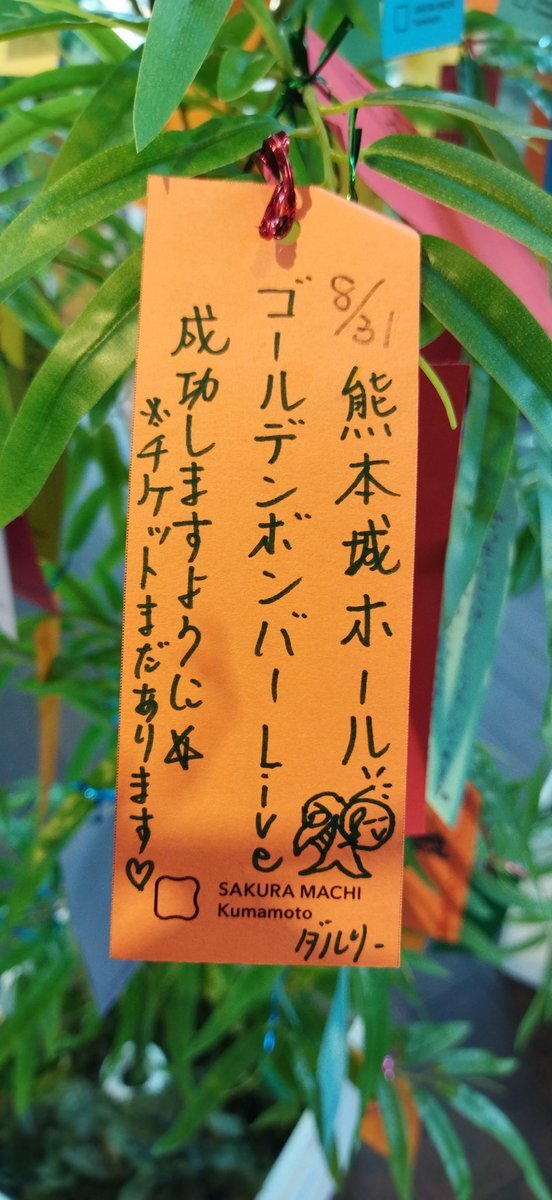 8/31 熊本城ホール
ゴールデンボンバー Live
成功しますように☆
※チケットまだあります♡
SAKURA MACHI
Kumamoto
ダルリー